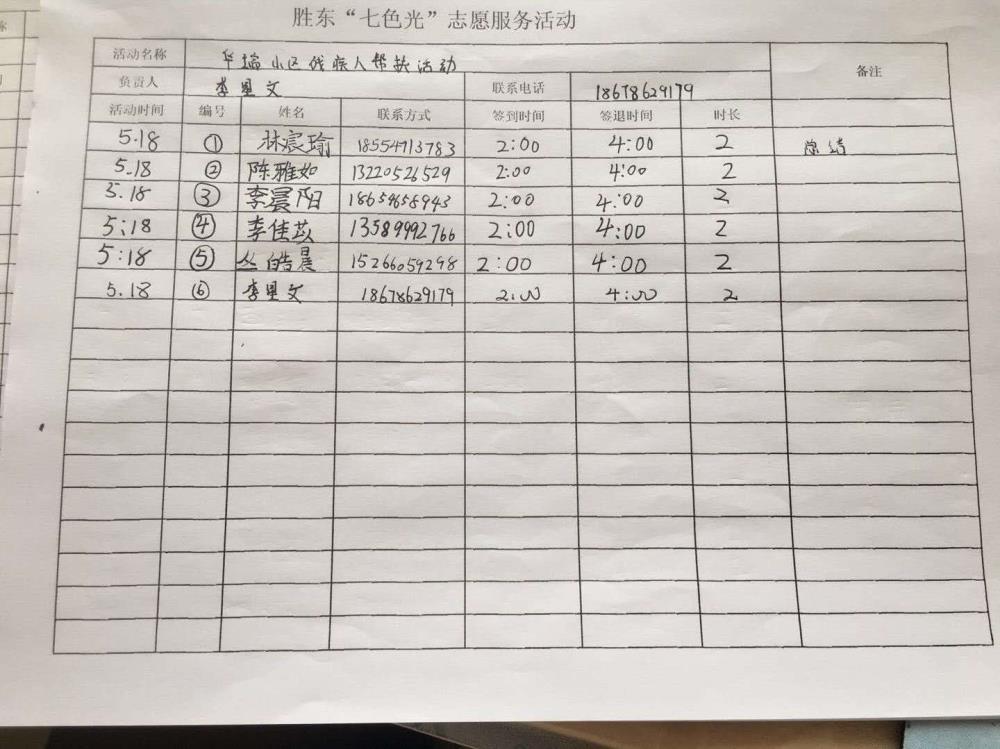 胜东“七色光”志愿服务活动
活动名称 华瑞小区残疾人帮扶活动 备注
负责人 李里文 联系电话 18678629179
活动时间 编号 姓名 联系方式 签到时间 签退时间 时长
5.18 ① 林宸瑜 18554713783 2:00 4:00 2 总结
5.18 ② 陈雅如 13220526529 2:00 4:00 2
5.18 ③ 李晨阳 18659658943 2:00 4:00 2
5:18 ④ 李佳苡 13589992766 2:00 4:00 2
5:18 ⑤ 丛皓晨 15266059298 2:00 4:00 2
5.18 ⑥ 李里文 18678629179 2:00 4:00 2